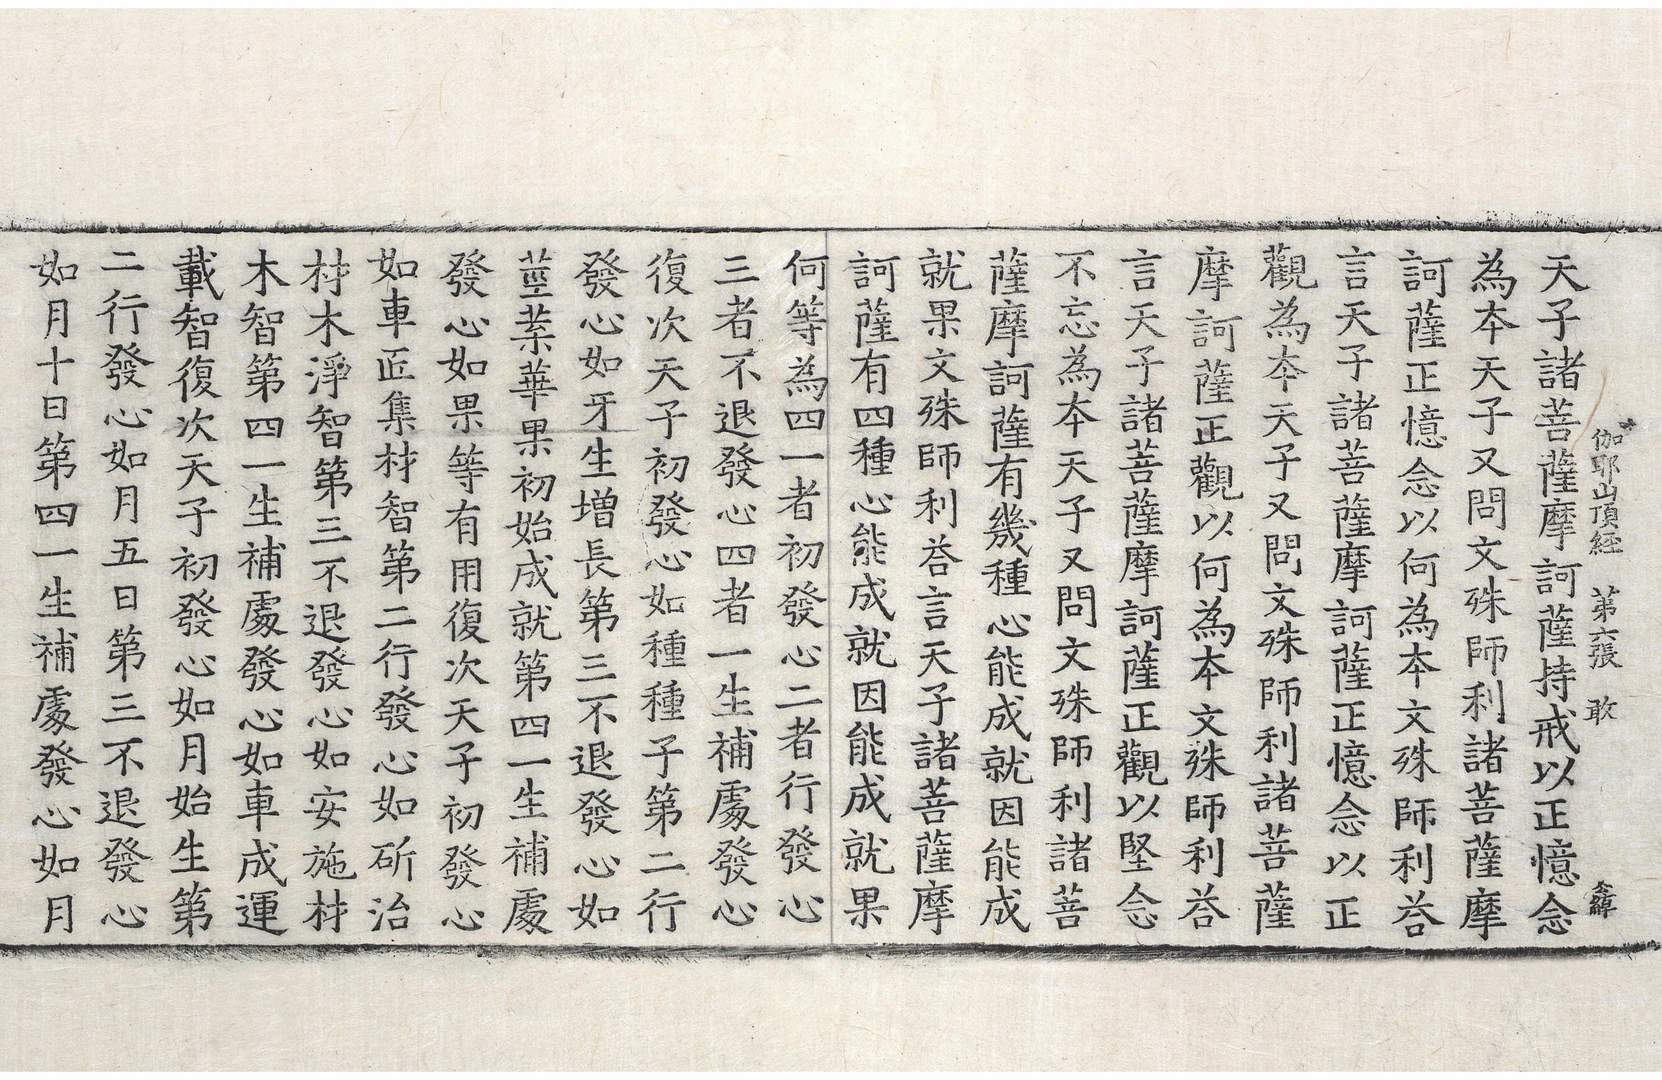 伽耶山頂経 第六張 敢
天子諸菩薩摩訶薩持戒以正憶念
為本天子又問文殊師利諸菩薩摩
訶薩正憶念以何為本文殊師利荅
言天子諸菩薩摩訶薩正憶念以正
觀為本天子又問文殊師利諸菩薩
摩訶薩正觀以何為本文殊師利荅
言天子諸菩薩摩訶薩正觀以堅念
不忘為本天子又問文殊師利諸菩
薩摩訶薩有幾種心能成就因能成
就果文殊師利荅言天子諸菩薩摩
訶薩有四種心能成就因能成就果
何等為四一者初發心二者行發心
三者不退發心四者一生補處發心
復次天子初發心如種種子第二行
發心如牙生增長第三不退發心如
莖葉華果初始成就第四一生補處
發心如果等有用復次天子初發心
如車匠集材智第二行發心如斫治
材木淨智第三不退發心如安施材
木智第四一生補處發心如車成運
載智復次天子初發心如月始生第
二行發心如月五日第三不退發心
如月十日第四一生補處發心如月